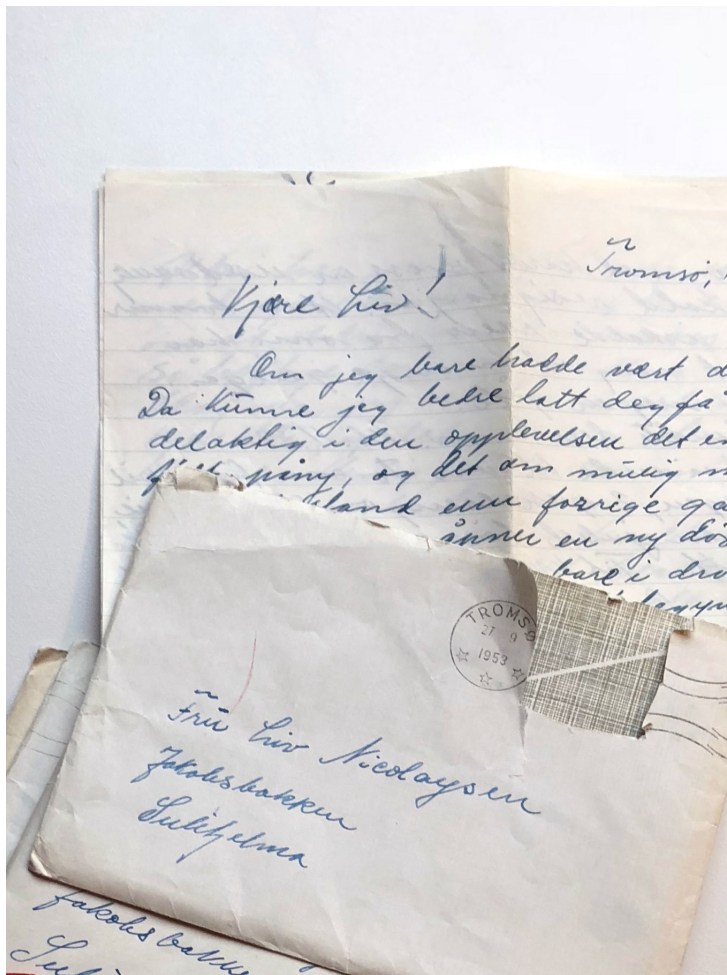 Tromsø,
Kjære Liv!
Om jeg bare hadde vært
Da kunne jeg bedre latt deg få
delaktig i den opplevelsen det
påny, og det om mulig
enn forrige
en ny
bare i
TROMSØ
27 9
1953
Fru Liv Nicolaysen
Jakobsbakken
Sulitjelma
Jakobsbakken